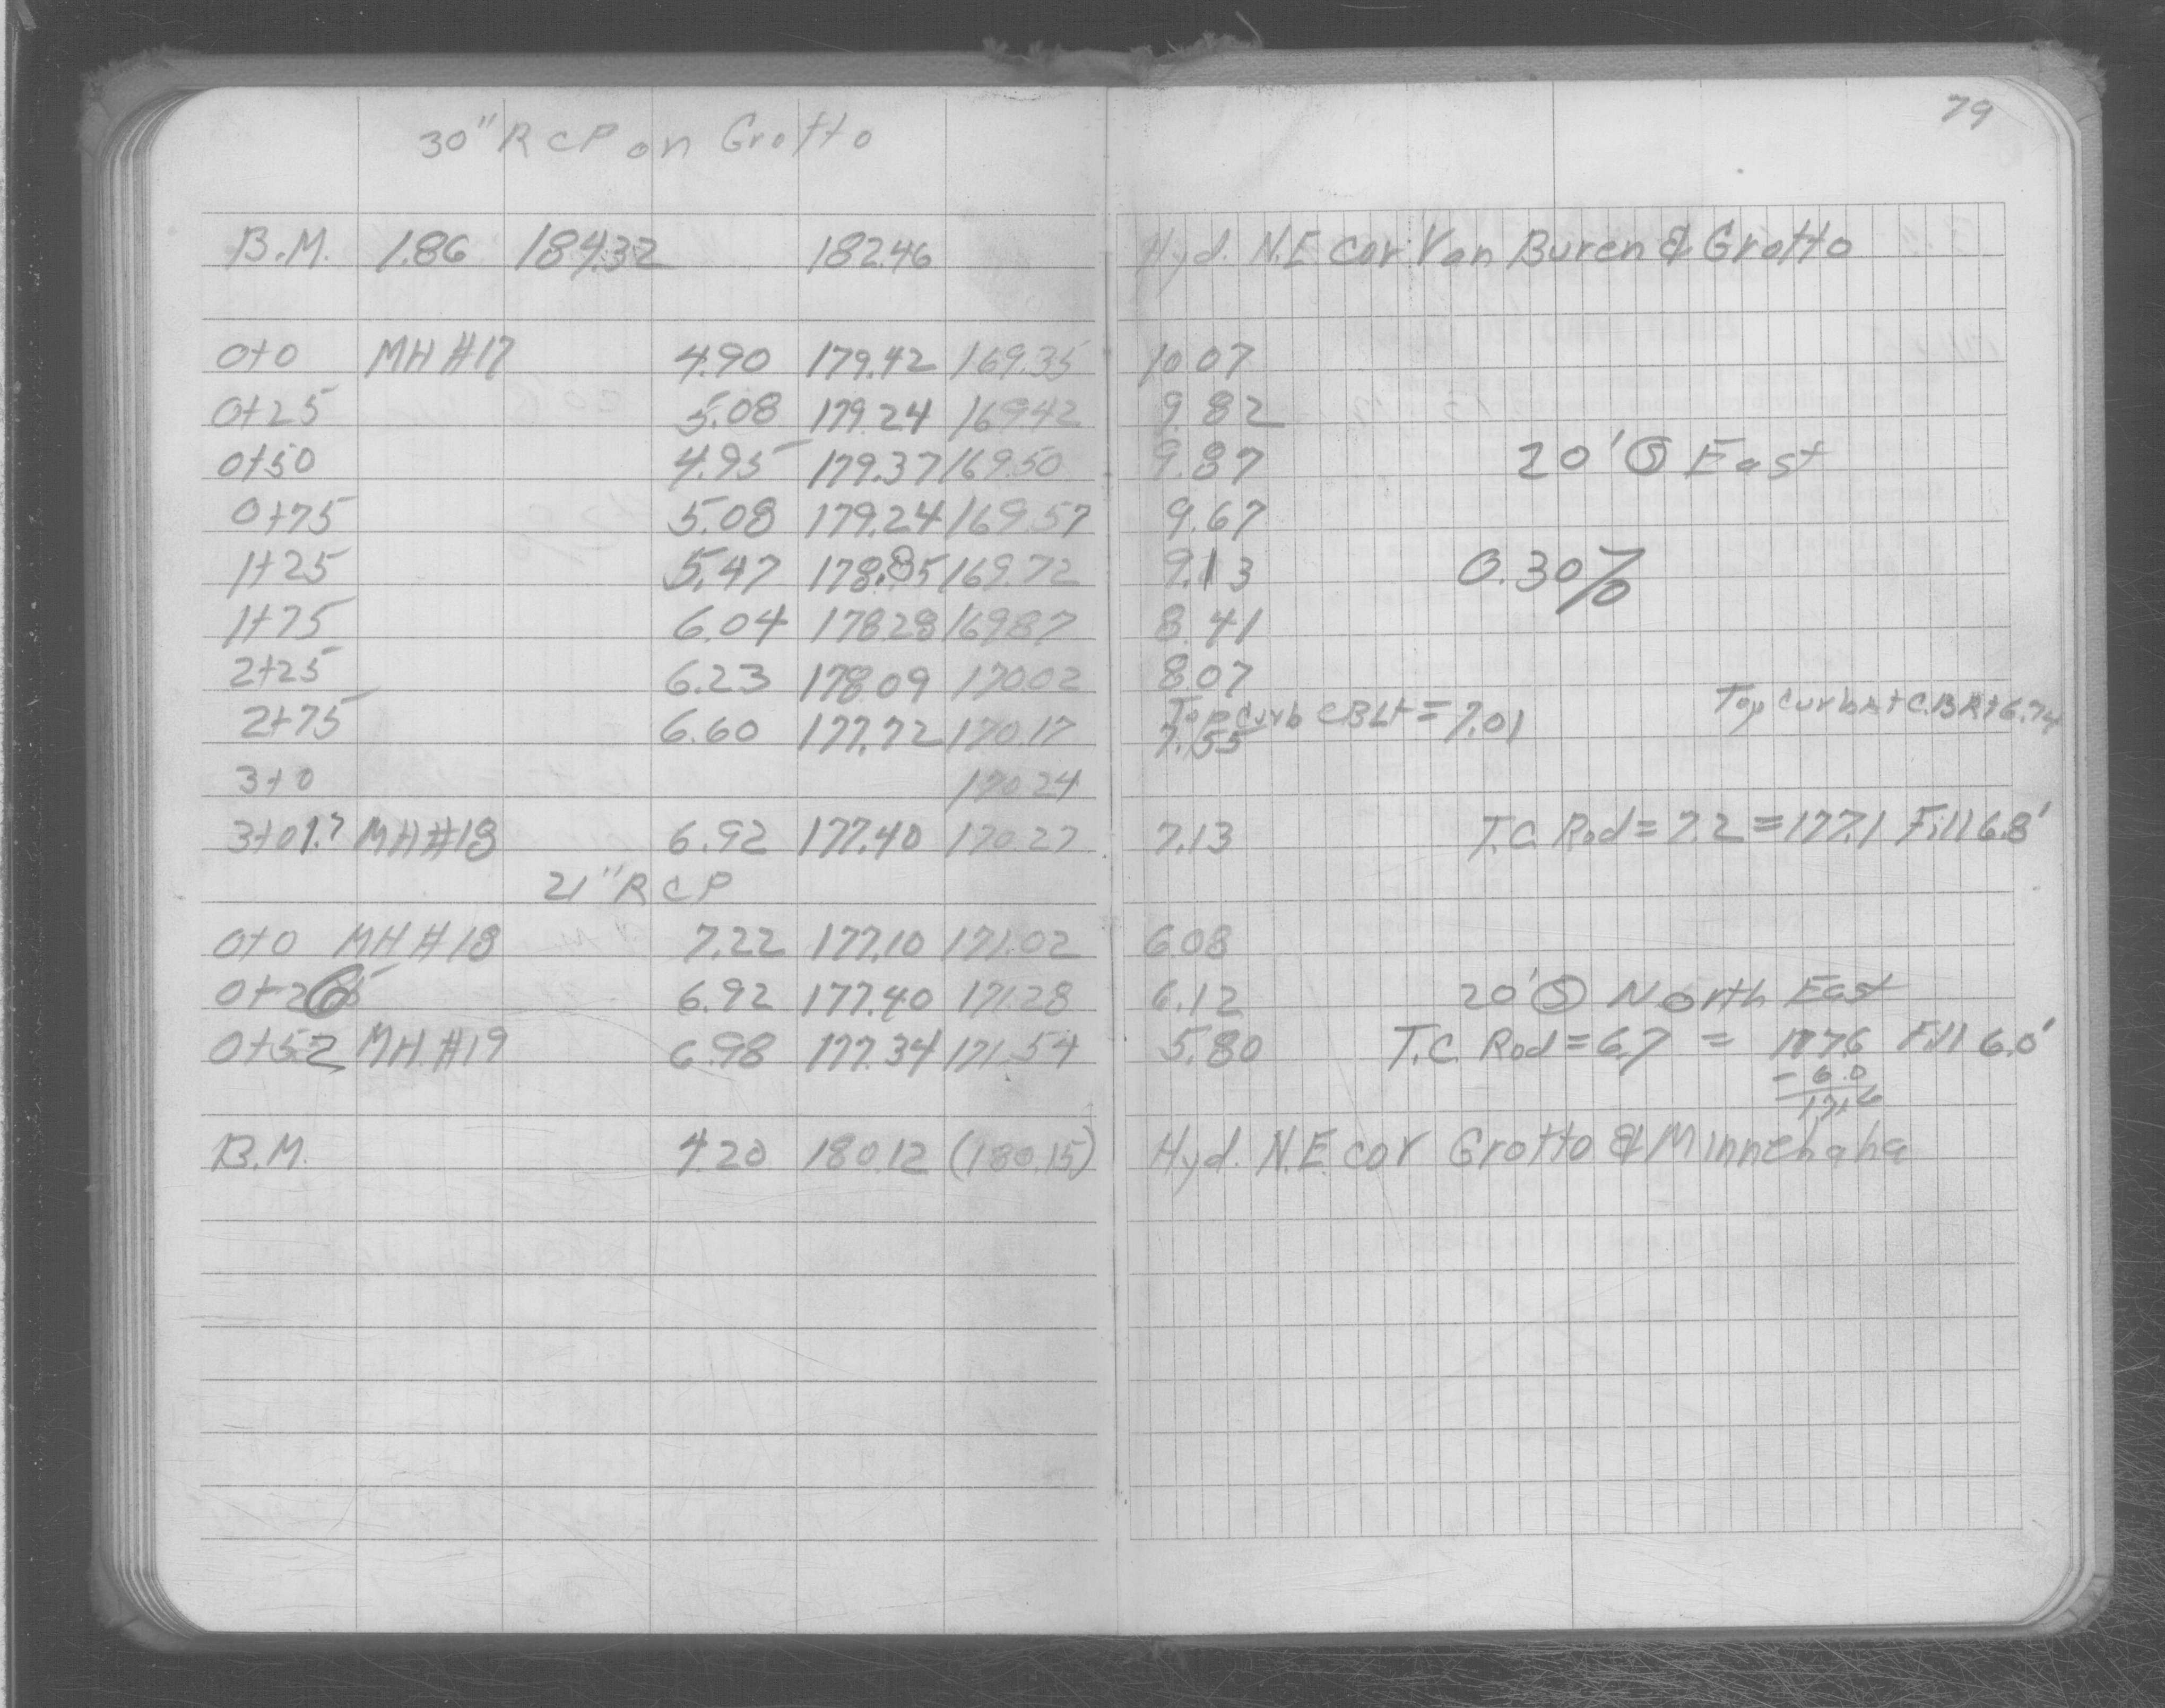 79
30" RCP on Grotto
B.M. 1.86 184.32 182.46 Hyd. N.E cor. Van Buren & Grotto
0+0 MH #17 4.90 179.42 169.35 10.07
0+25 5.08 179.24 169.42 9.82
0+50 4.95 179.37 169.50 9.87 20' Ⓢ East
0+75 5.08 179.24 169.57 9.67
1+25 5.47 178.85 169.72 9.13 0.30%
1+75 6.04 178.28 169.87 8.41
2+25 6.23 178.09 170.02 8.07
Top Curb CBLt = 7.01 Top Curb At C.B Rt 6.74
2+75 6.60 177.72 170.17 7.55
3+0 170.24
3+01.7 MH #18 6.92 177.40 170.27 7.13 T.C. Rod = 7.2 = 177.1 Fill 6.8'
21" RCP
0+0 MH #18 7.22 177.10 171.02 6.08
0+26 6.92 177.40 171.28 6.12 20' Ⓢ North East
0+52 MH #19 6.98 177.34 171.54 5.80 T.C. Rod = 6.7 = 177.6 Fill 6.0'
- 6.0
171.6
B.M. 4.20 180.12 (180.15) Hyd. N.E. cor Grotto & Minnehaha